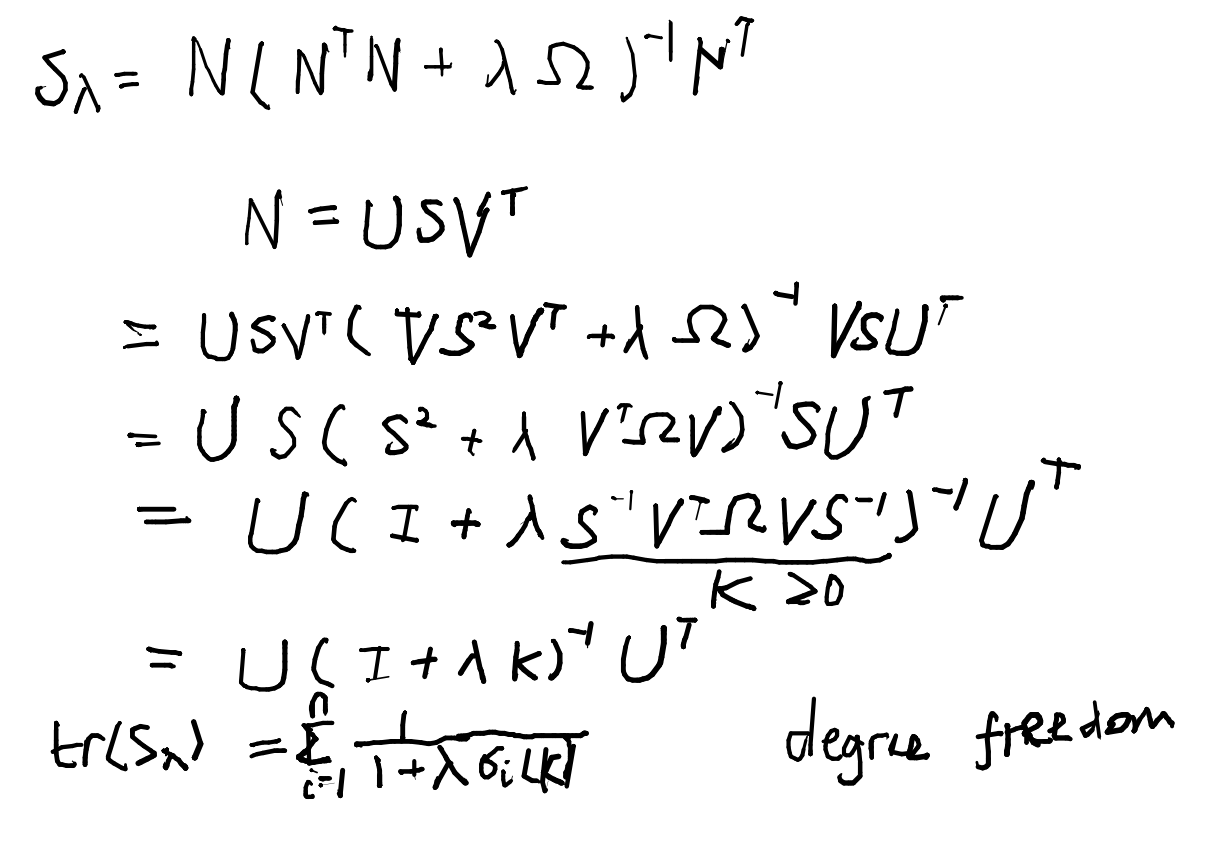 S_λ = N(N^T N + λΩ)^{-1} N^T
N = USV^T
= USV^T(VS²V^T + λΩ)^{-1} VSU^T
= US(S² + λ V^TΩV)^{-1}SU^T
= U(I + λ S^{-1}V^TΩVS^{-1})^{-1}U^T
K ≥0
= U(I + λK)^{-1}U^T
tr(S_λ) = ∑_{i=1}^{n} 1/(1+λσ_i(K)) degree freedom